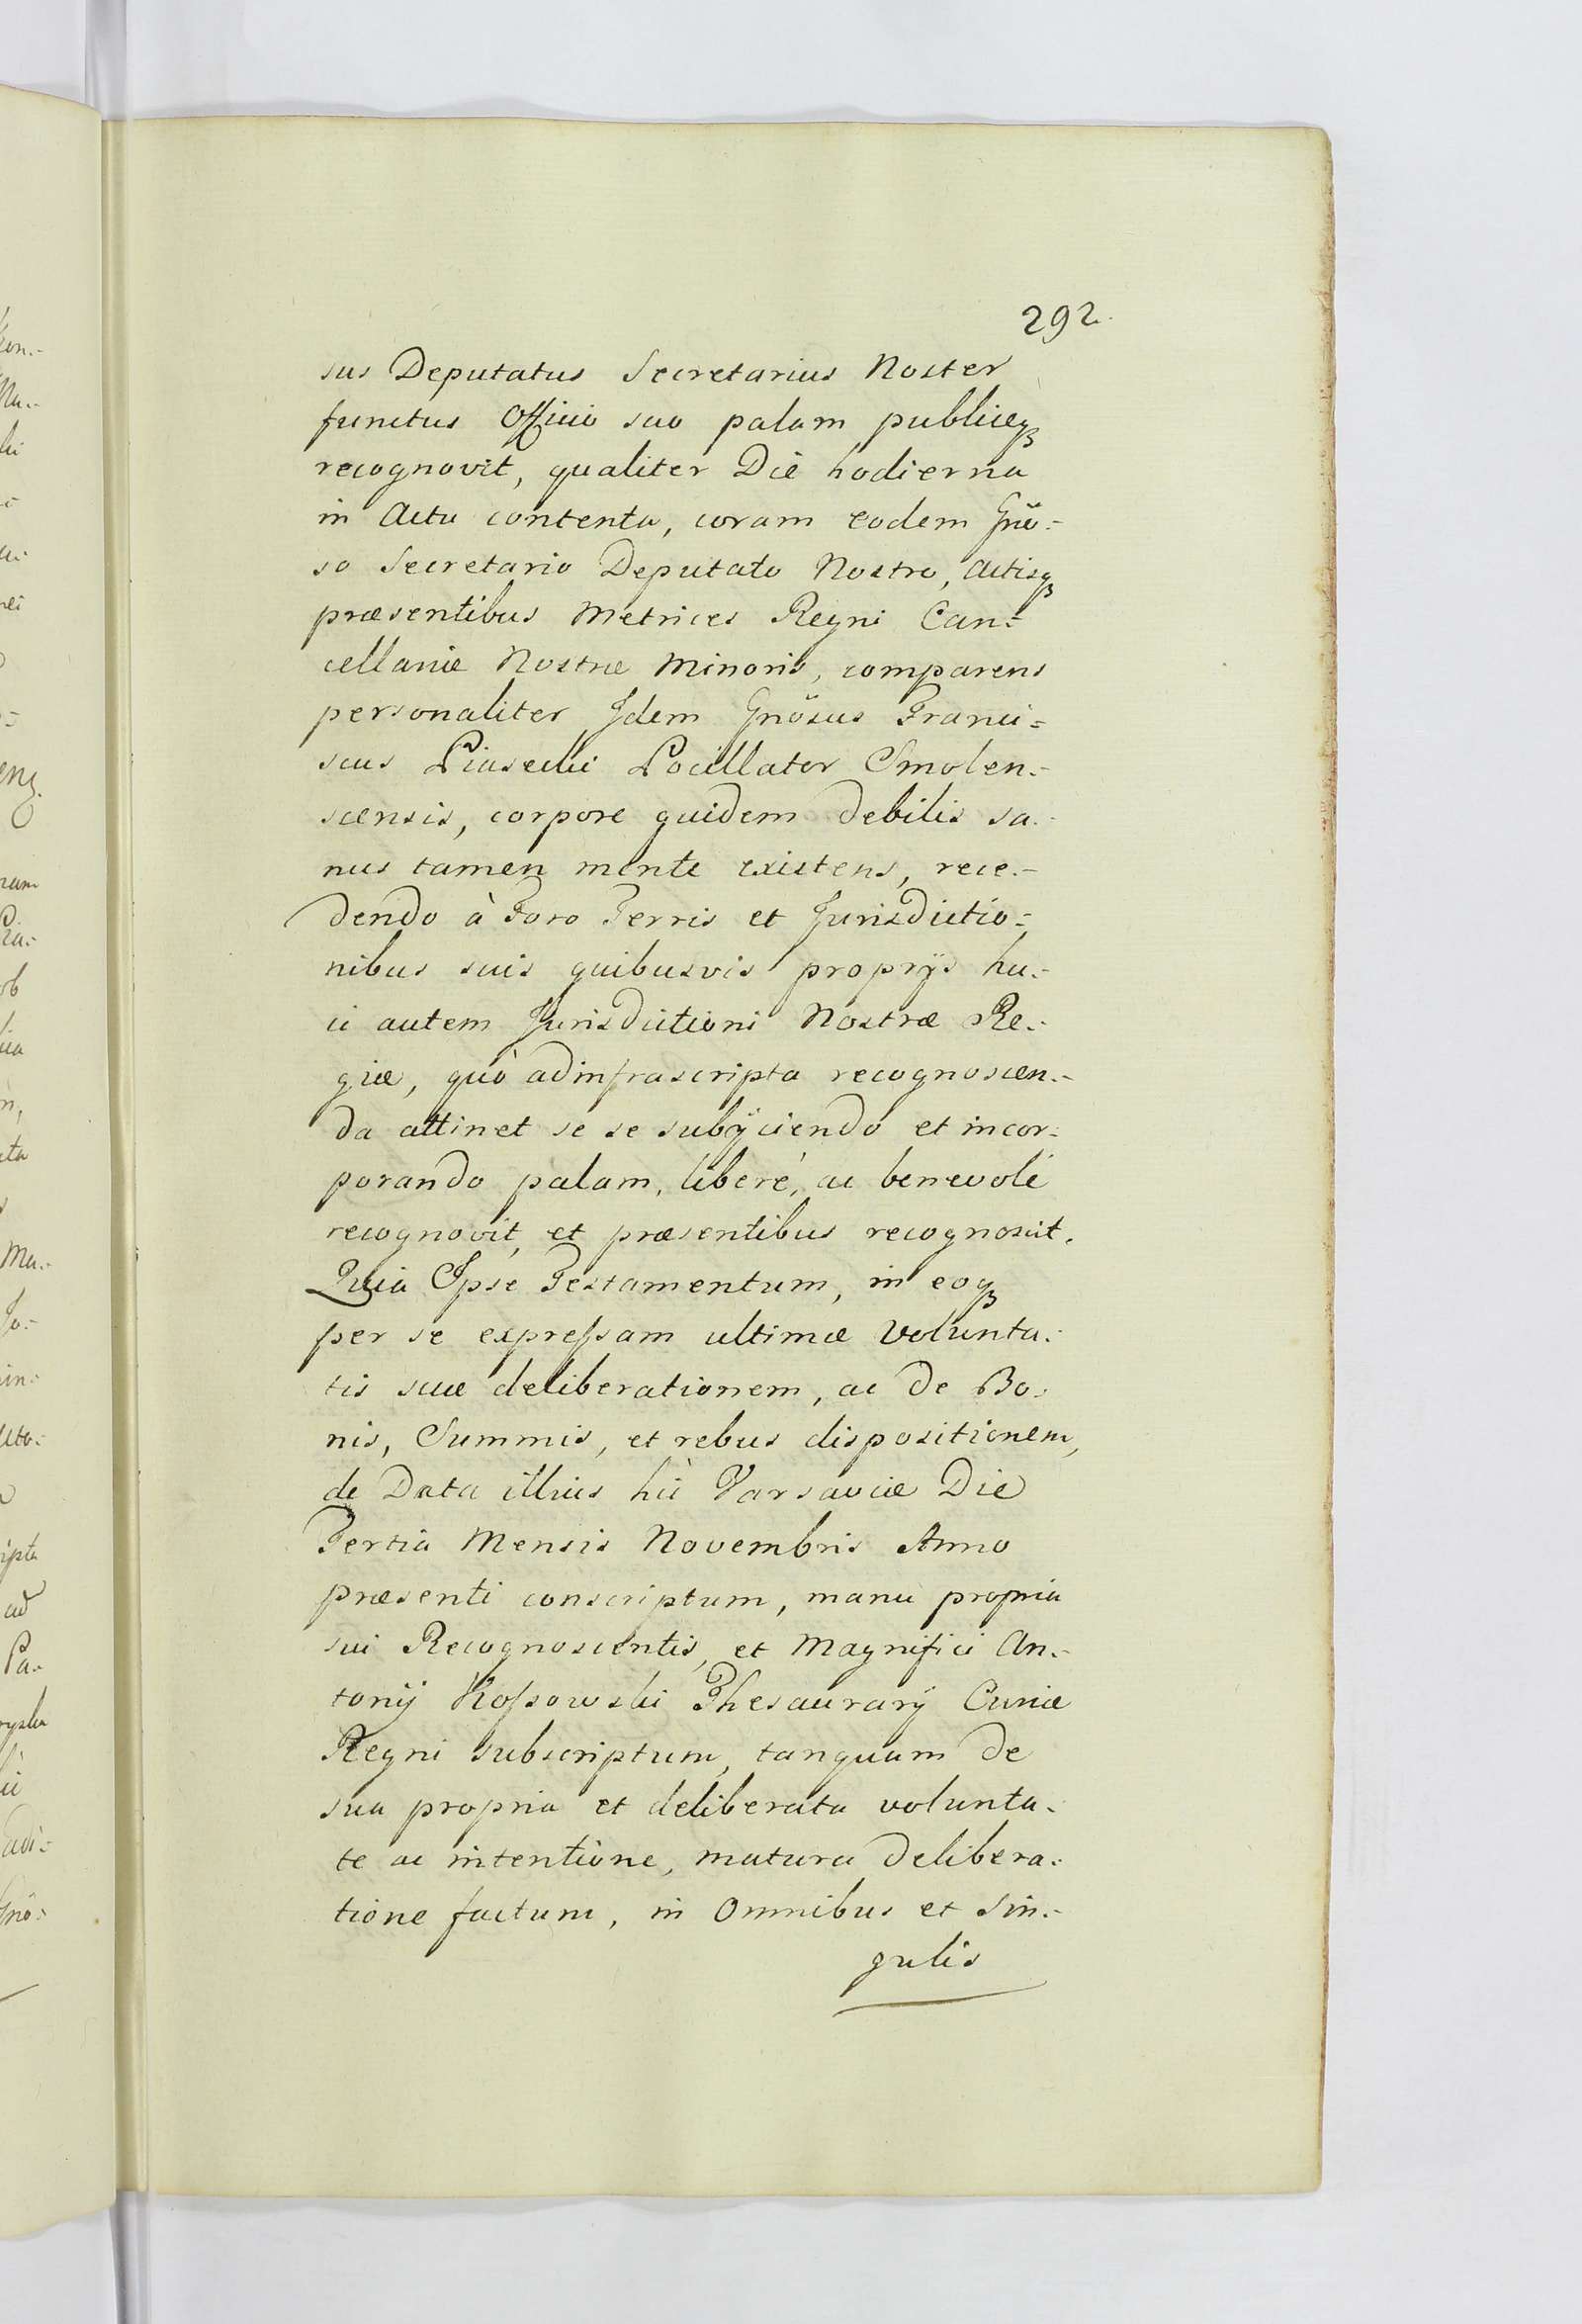 292.
sus Deputatus Secretarius Noster
functus Officio suo palam publiceqꝫ
recognovit, qualiter Die hodierna
in Actu contenta, coram eodem Gnö-
so Secretario Deputato Nostro, Actisqꝫ
præsentibus Metrices Regni Can-
cellariæ Nostræ Minoris, comparens
personaliter Idem Gnösus Franci=
scus Piasecki Pocillator Smolen-
scensis, corpore quidem debilis sa-
nus tamen mente existens, rece-
dendo à Foro Terris et Jurisdictio=
nibus suis quibusvis proprijs hu-
ic autem Jurisdictioni Nostræ Re-
giæ, quò ad infrascripta recognoscen-
da attinet se se subÿciendo et incor-
porando palam, liberè, ac benevolè
recognovit, et præsentibus recognoscit.
Quia Ipse Testamentum, in eoqꝫ
per se expreſsam ultimæ Volunta-
tis suæ deliberationem, ac de Bo-
nis, Summis, et rebus dispositionem,
de Data illius hìc Varsaviæ Die
Tertia Mensis Novembris Anno
præsenti conscriptum, manu propria
sui Recognoscentis, et Magnifici An-
tonij Koſsowski Thesaurarÿ Curiæ
Regni subscriptum, tanquam de
sua propria et deliberata volunta-
te ac intentione, matura delibera-
tione factum, in Omnibus et Sin-
gulis